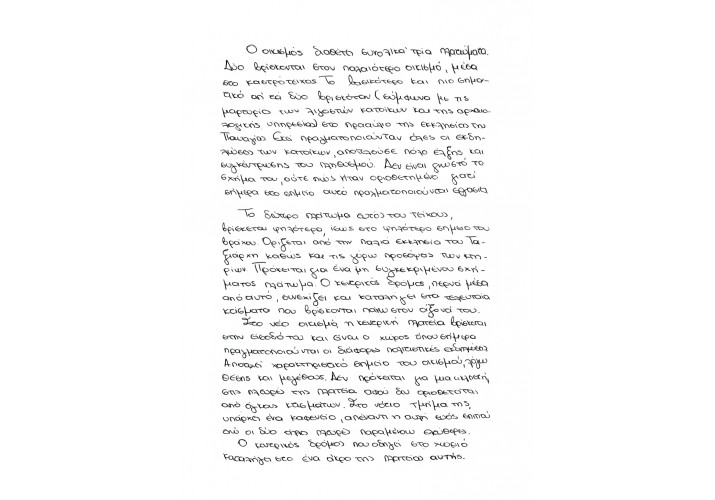 Ο οικισμός διαθέτει συνολικά τρία πλατώματα.
Δύο βρίσκονται στον παλαιότερο οικισμό, μέσα
στο καστρότειχος. Το βασικότερο και πιο σημα-
τικό απ τα δύο βρισκόταν (σύμφωνα με τις
μαρτυρία των λιγοστών κατοίκων και της αρχαιο-
λογικής υπηρεσίας) στο προαύλιο της εκκλησίας της
Παναγίας. Εκεί πραγματοποιούνταν όλες οι εκδη-
λώσεις των κατοίκων, αποτελούσε πόλο έλξης και
συγκέντρωσης του πληθυσμού. Δεν είναι γνωστό το
σχήμα του, ούτε πώς ήταν οριοθετημένο γιατί
σήμερα στο σημείο αυτό πραγματοποιούνται εργασίες
Το δεύτερο πλάτωμα εντός του τείχους,
βρίσκεται ψηλότερα, ίσως στο ψηλότερο σημείο του
βράχου. Ορίζεται από την παλιά εκκλησία του Τα-
ξιάρχη καθώς και τις γύρω προσόψεις των κτη-
ρίων. Πρόκειται για ένα μη συγκεκριμένου σχή-
ματος πλάτωμα. Ο κεντρικός δρόμος, περνά μέσα
από αυτό, συνεχίζει και καταλήγει στα τελευταία
κτίσματα που βρίσκονται πάνω στον άξονά του.
Στο νέο οικισμό, η κεντρική πλατεία βρίσκεται
στην είσοδό του και είναι ο χώρος όπου σήμερα
πραγματοποιούνται οι διάφορες πολιτιστικές εκδηλώσεις.
Αποτελεί χαρακτηριστικό σημείο του οικισμού, λόγω
θέσης και μεγέθους. Δεν πρόκειται για μια κλειστή
στις πλευρές της πλατεία αφού δεν οριοθετείται
από όγκους κτισμάτων. Στο νότιο τμήμα της,
υπάρχει ένα καφενείο, απέναντι η αυλή ενός σπιτιού
ενώ οι δύο άλλες πλευρές παραμένουν ελεύθερες.
Ο κεντρικός δρόμος που οδηγεί στο χωριό
καταλήγει στο ένα άκρο της πλατείας αυτής.